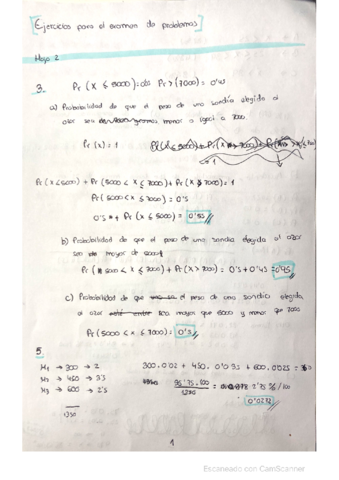 [Ejercicios para el examen de problemas]
Hoja 2
3. Pr (X ≤ 5000) = 0'05 Pr > (7000) = 0'45
a) Probabilidad de que el peso de una sandía elegida al
azar sea menor o igual a 7000.
Pr (x) = 1
Pr (X ≤ 5000) + Pr (5000 < X ≤ 7000) + Pr (X > 7000) = 1
Pr (5000 < X ≤ 7000) = 0'5
0'5 + Pr (X ≤ 5000) = 0'55
b) Probabilidad de que el peso de una sandía elegida al azar
sea mayor de
Pr (5000 < X ≤ 7000) + Pr (X > 7000) = 0'5 + 0'45 = 0'95
c) Probabilidad de que el peso de una sandía elegida
al azar sea mayor que 5000 y menor que 7000
Pr (5000 < X ≤ 7000) = 0'5
5.
M1 → 300 → 2 300 · 0'02 + 450 · 0'035 + 600 · 0'025 =
M2 → 450 → 3'5
M3 → 600 → 2'5
1350
1
Escaneado con CamScanner